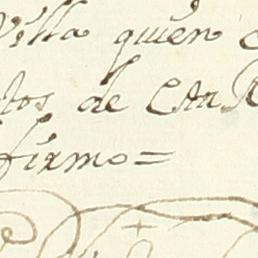 Villa quien
tos de esta R
firmo=